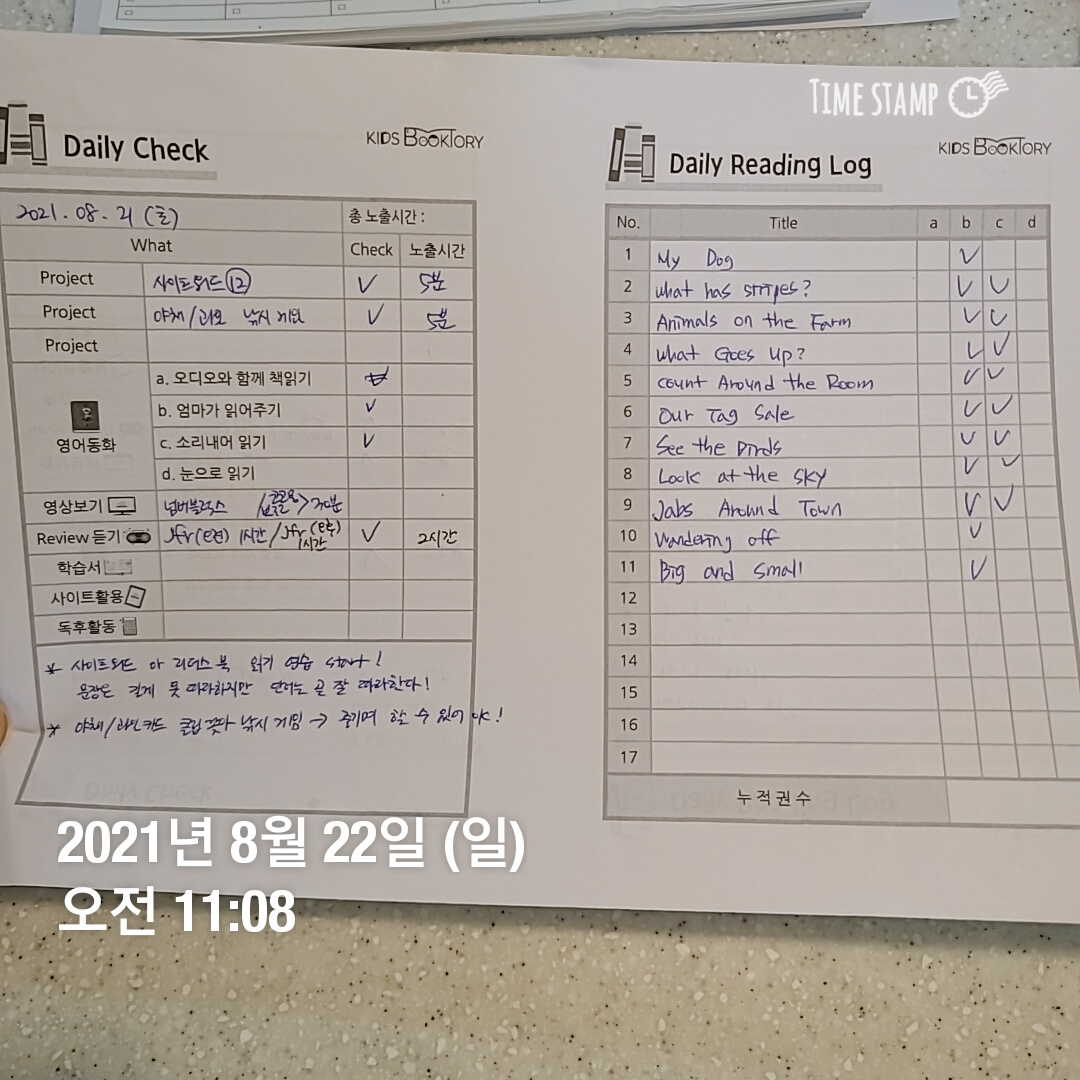 TIME STAMP
Daily Check
KIDS BOOKTORY
2021. 08. 21 (토)
총 노출시간 :
What
Check
노출시간
Project 사이트워드 ⑫ ✓ 5분
Project 야채/과일 낚시 게임 ✓ 5분
Project
영어동화
a. 오디오와 함께 책읽기
b. 엄마가 읽어주기 ✓
c. 소리내어 읽기 ✓
d. 눈으로 읽기
영상보기 넘버블럭스 30분
Review 듣기 Jfr(오전) 1시간 / Jfr(오후) 1시간 ✓ 2시간
학습서
사이트활용
독후활동
* 사이트워드 아 리더스 북 읽기 연습 start!
문장은 길게 못 따라하지만 단어는 곧 잘 따라한다!
* 야채/과일카드 클립 꽂아 낚시 게임 → 즐기며 할 수 있어 OK!
Daily Reading Log
KIDS BOOKTORY
No. Title a b c d
1 My Dog ✓
2 what has stripes? ✓ ✓
3 Animals on the Farm ✓ ✓
4 what Goes Up? ✓ ✓
5 count Around the Room ✓ ✓
6 Our Tag Sale ✓ ✓
7 See the Birds ✓ ✓
8 Look at the sky ✓ ✓
9 Jobs Around Town ✓ ✓
10 Wandering off ✓
11 Big and small ✓
12
13
14
15
16
17
누적권수
2021년 8월 22일 (일)
오전 11:08